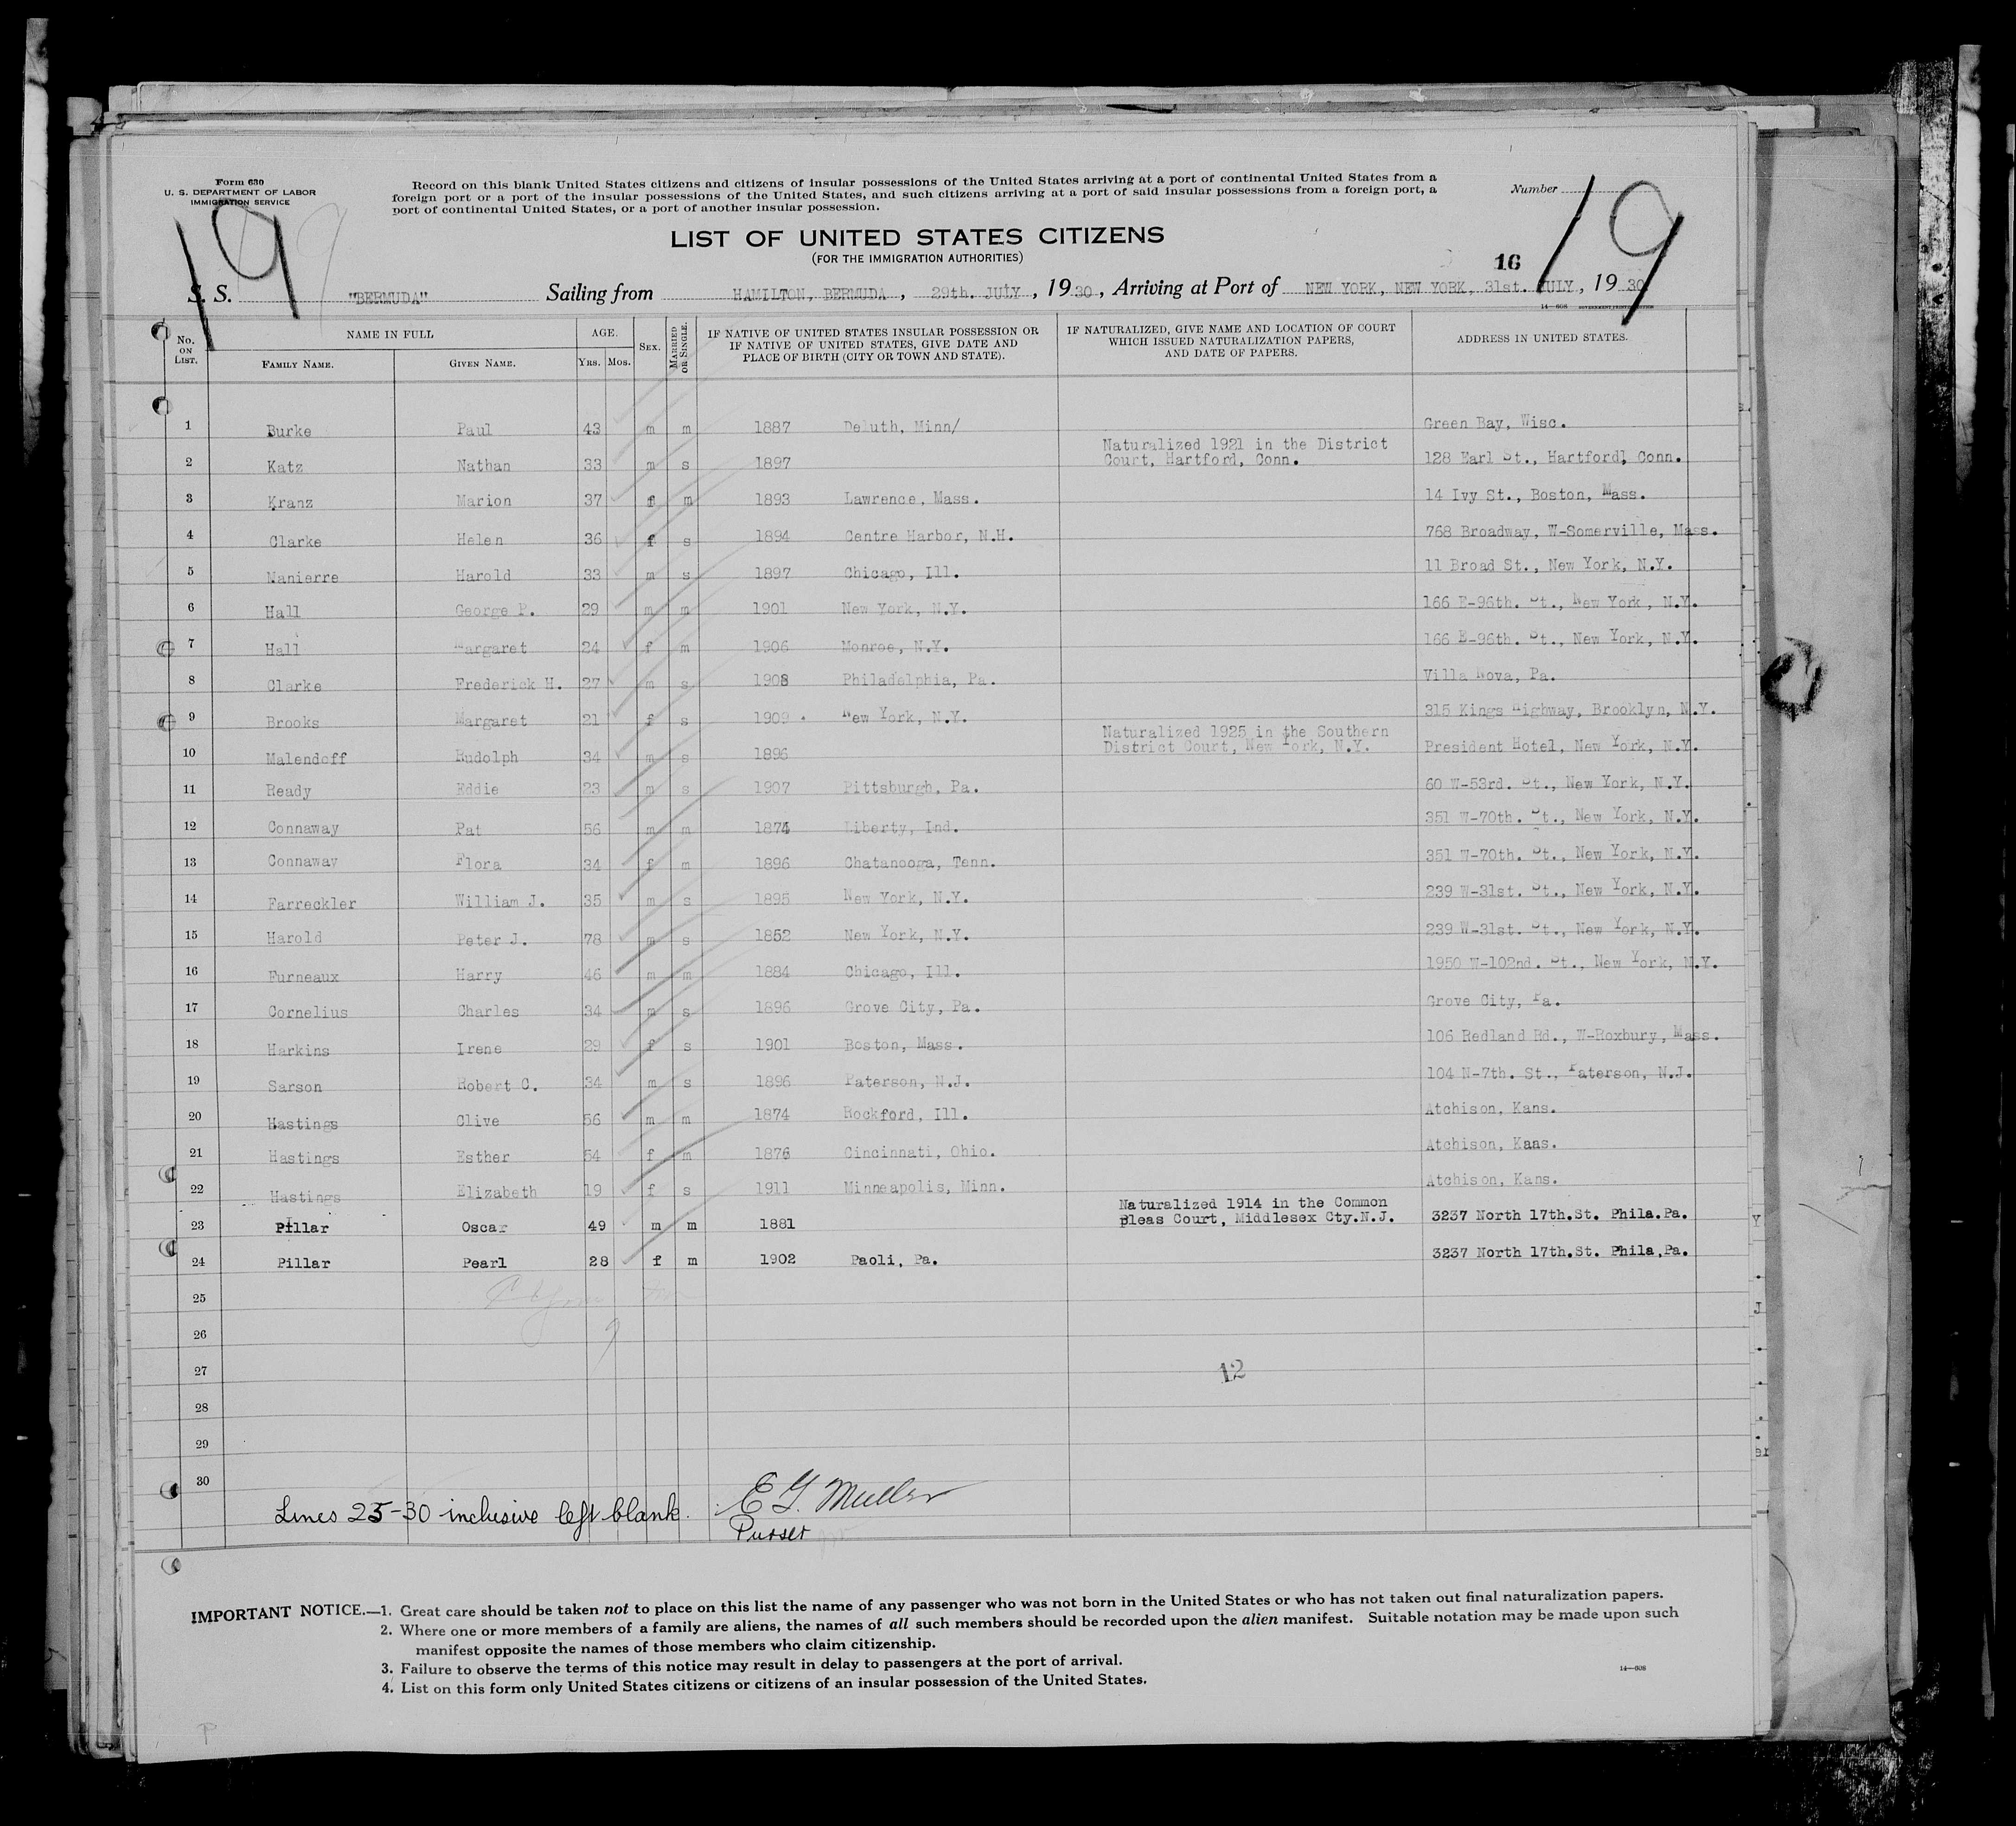 Form 630
U. S. DEPARTMENT OF LABOR
IMMIGRATION SERVICE
Record on this blank United States citizens and citizens of insular possessions of the United States arriving at a port of continental United States from a
foreign port or a port of the insular possessions of the United States, and such citizens arriving at a port of said insular possessions from a foreign port, a
port of continental United States, or a port of another insular possession.
Number
19
19
LIST OF UNITED STATES CITIZENS
(FOR THE IMMIGRATION AUTHORITIES)
16
S. S. "BERMUDA" Sailing from HAMILTON, BERMUDA, 29th. JULY, 1930, Arriving at Port of NEW YORK, NEW YORK, 31st. JULY, 1930
14—608 GOVERNMENT PRINTING OFFICE
No. ON LIST. NAME IN FULL FAMILY NAME. GIVEN NAME. AGE. YRS. MOS. SEX. MARRIED OR SINGLE. IF NATIVE OF UNITED STATES INSULAR POSSESSION OR IF NATIVE OF UNITED STATES, GIVE DATE AND PLACE OF BIRTH (CITY OR TOWN AND STATE). IF NATURALIZED, GIVE NAME AND LOCATION OF COURT WHICH ISSUED NATURALIZATION PAPERS, AND DATE OF PAPERS. ADDRESS IN UNITED STATES.
1 Burke Paul 43 m m 1887 Deluth, Minn/ Green Bay, Wisc.
2 Katz Nathan 33 m s 1897 Naturalized 1921 in the District Court, Hartford, Conn. 128 Earl St., Hartford, Conn.
3 Kranz Marion 37 f m 1893 Lawrence, Mass. 14 Ivy St., Boston, Mass.
4 Clarke Helen 36 f s 1894 Centre Harbor, N.H. 768 Broadway, W-Somerville, Mass.
5 Manierre Harold 33 m s 1897 Chicago, Ill. 11 Broad St., New York, N.Y.
6 Hall George P. 29 m m 1901 New York, N.Y. 166 E-96th. St., New York, N.Y.
7 Hall Margaret 24 f m 1906 Monroe, N.Y. 166 E-96th. St., New York, N.Y.
8 Clarke Frederick H. 27 m s 1903 Philadelphia, Pa. Villa Nova, Pa.
9 Brooks Margaret 21 f s 1909 . New York, N.Y. 315 Kings Highway, Brooklyn, N.Y.
10 Malendoff Rudolph 34 m s 1896 Naturalized 1925 in the Southern District Court, New York, N.Y. President Hotel, New York, N.Y.
11 Ready Eddie 23 m s 1907 Pittsburgh, Pa. 60 W-53rd. St., New York, N.Y.
12 Connaway Pat 56 m m 1874 Liberty, Ind. 351 W-70th. St., New York, N.Y.
13 Connaway Flora 34 f m 1896 Chatanooga, Tenn. 351 W-70th. St., New York, N.Y.
14 Farreckler William J. 35 m s 1895 New York, N.Y. 239 W-31st. St., New York, N.Y.
15 Harold Peter J. 78 m s 1852 New York, N.Y. 239 W-31st. St., New York, N.Y.
16 Furneaux Harry 46 m m 1884 Chicago, Ill. 1950 W-102nd. St., New York, N.Y.
17 Cornelius Charles 34 m s 1896 Grove City, Pa. Grove City, Pa.
18 Harkins Irene 29 f s 1901 Boston, Mass. 106 Redland Rd., W-Roxbury, Mass.
19 Sarson Robert C. 34 m s 1896 Paterson, N.J. 104 N-7th. St., Paterson, N.J.
20 Hastings Clive 56 m m 1874 Rockford, Ill. Atchison, Kans.
21 Hastings Esther 54 f m 1876 Cincinnati, Ohio. Atchison, Kaas.
22 Hastings Elizabeth 19 f s 1911 Minneapolis, Minn. Atchison, Kans.
23 Pillar Oscar 49 m m 1881 Naturalized 1914 in the Common Pleas Court, Middlesex Cty.N.J. 3237 North 17th.St. Phila.Pa.
24 Pillar Pearl 28 f m 1902 Paoli, Pa. 3237 North 17th.St. Phila,Pa.
25
26
27
12
28
29
30
Lines 25-30 inclusive left blank. E G. Muller
Purser
IMPORTANT NOTICE.—1. Great care should be taken not to place on this list the name of any passenger who was not born in the United States or who has not taken out final naturalization papers.
2. Where one or more members of a family are aliens, the names of all such members should be recorded upon the alien manifest. Suitable notation may be made upon such
manifest opposite the names of those members who claim citizenship.
3. Failure to observe the terms of this notice may result in delay to passengers at the port of arrival.
4. List on this form only United States citizens or citizens of an insular possession of the United States.
14—608